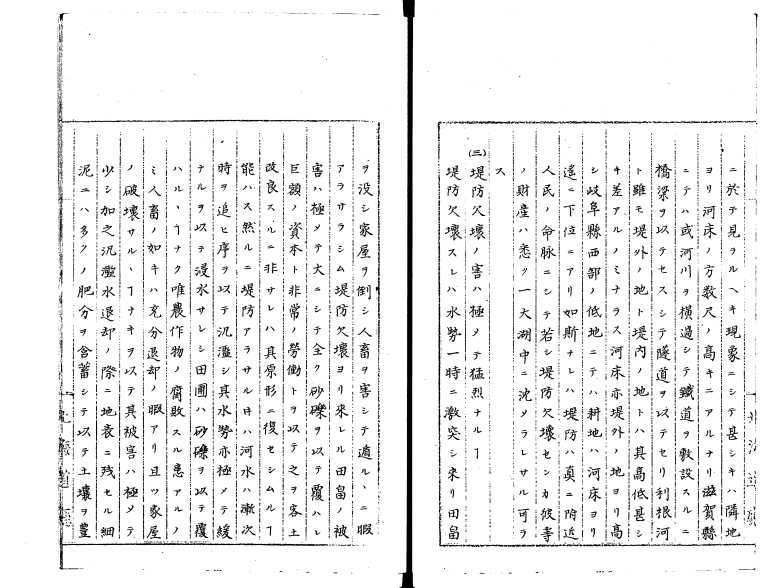 ニ於テ見ヲルヘキ現象ニシテ甚シキハ隣地
ヨリ河床ノ方数尺ノ高キニアルナリ滋賀縣
ニテハ或河川ヲ横過シテ鐵道ヲ敷設スルニ
橋梁ヲ以テセスシテ隧道ヲ以テセリ利根河
ト雖モ堤外ノ地ト堤内ノ地トハ其高低甚シ
キ差アルノミナラス河床亦堤外ノ地ヨリ高
シ岐阜縣西部ノ低地ニテハ耕地ハ河床ヨリ
遙ニ下位ニアリ如斯ナレハ堤防ハ真ニ附近
人民ノ命脈ニシテ若シ堤防欠壊センカ彼等
ノ財産ハ悉ク一大湖中ニ沈メラレサル可ラ
ス
(三)堤防欠壊ノ害ハ極メテ猛烈ナルヿ
堤防欠壊スレハ水勢一時ニ激突シ来リ田畠
ヲ没シ家屋ヲ倒シ人畜ヲ害シテ遁ルヽニ暇
アラサラシム堤防欠壊ヨリ來レル田畠ノ被
害ハ極メテ大ニシテ全ク砂礫ヲ以テ覆ハレ
巨額ノ資本ト非常ノ勞働トヲ以テ之ヲ客土
改良スルニ非サレハ其原形ニ復セシムルヿ
能ハス然ルニ堤防アラサル井ハ河水ハ漸次
時ヲ追ヒ序ヲ以テ汎濫シ其水勢亦極メテ緩
テルヲ以テ浸水サレシ田圃ハ砂礫ヲ以テ覆
ハルヽヿナク唯農作物ノ腐敗スル患アルノ
ミ人畜ノ如キハ充分退却ノ暇アリ且ツ家屋
ノ破壊サルヽヿナキヲ以テ其被害ハ極メテ
少シ加之汎濫水退却ノ際ニ地表ニ残セル細
泥ニハ多クノ肥分ヲ含蓄シテ以テ土壌ヲ豊